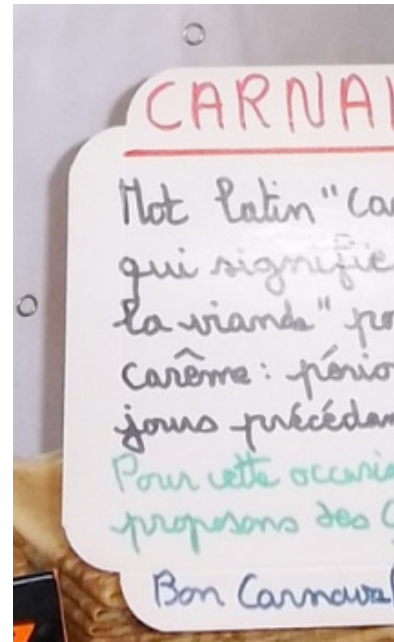 CARNA
Mot latin "Ca
qui signifie
la viande" po
carême : pério
jours précédan
Pour cette occasio
proposons des
Bon Carnaval